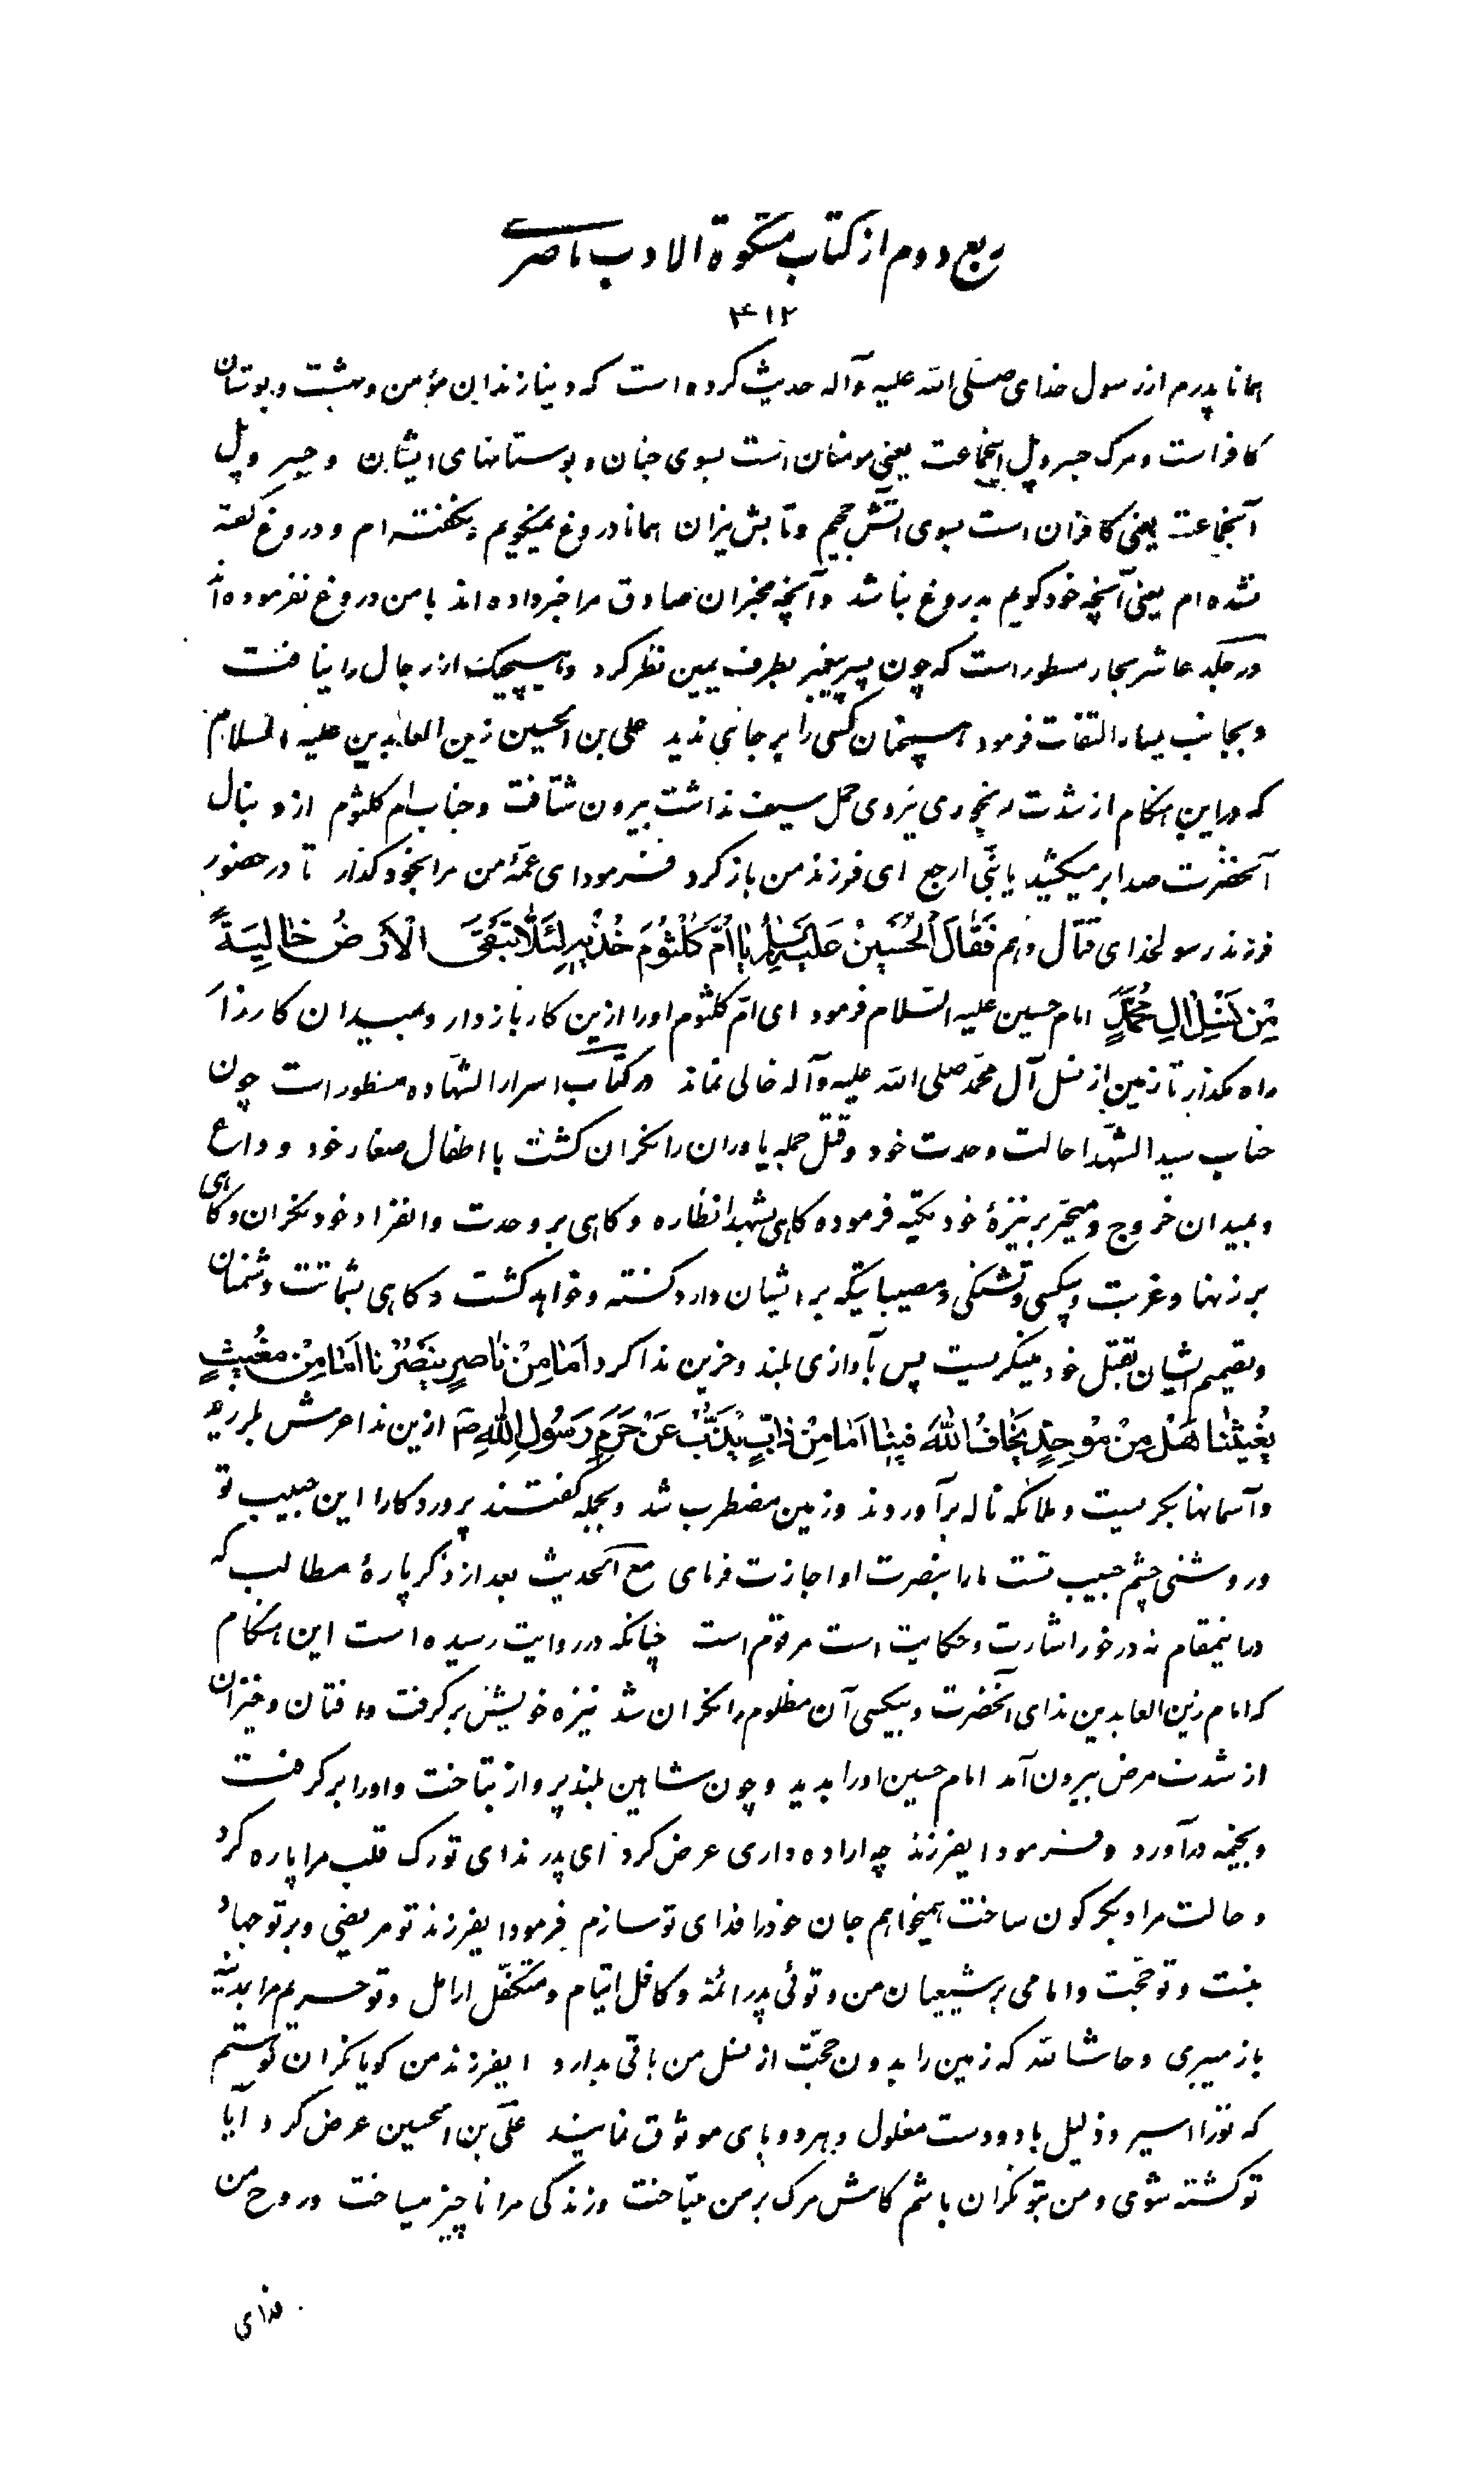 ربع دوم از کتاب مشکوة الادب ناصری
۴۱۲
همانا پدرم از رسول خدای صلی الله علیه وآله حدیث کرده است که دنیا زندان مؤمن و بهشت و بوستان
کافر است و مرک جسر و پل اینجماعت یعنی مومنان است بسوی جنان و بوستانهای ایشان و جسر و پل
آنجماعت یعنی کافران است بسوی آتش جحیم و تابش نیران همانا دروغ نمیکویم و نکفته ام و دروغ کفته
نشده ام یعنی آنچه خود کویم بدروغ نباشد و آنچه مخبران صادق مرا خبر داده اند با من دروغ نفرموده اند
در جلد عاشر بحار مسطور است که چون پسر پیغمبر بطرف یمین نظر کرد و هیچیک از رجال را نیافت
و بجانب یسار التفات فرمود همچنان کسی را بر جای ندید علی بن الحسین زین العابدین علیه السلام
که در این هنکام از شدت رنجوری نیروی حمل سیف نداشت بیرون شتافت و جناب ام کلثوم از دنبال
آنحضرت صدا بر میکشید یا بنّی ارجع ای فرزند من باز کرد فرمود ای عمّهٔ من مرا بخود کذار تا در حضور
فرزند رسولخدای قتال دهم فَقَالَ الْحُسَيْنُ عَلَيْهِ السَّلامُ يَا اُمَّ كُلْثُومَ خُذْيهِ لِئَلّا تَبْقَى الْاَرْضُ خَالِيَةً
مِنْ نَسْلِ الِ مُحَمَّدٍ امام حسین علیه السلام فرمود ای امّ کلثوم او را ازین کار باز دار و بمیدان کارزار
راه مکذار تا زمین از نسل آل محمّد صلی الله علیه وآله خالی نماند در کتاب اسرار الشهاده منظور است چون
جناب سید الشهدا حالت وحدت خود و قتل جمله یاوران را نکران کشت با اطفال صغار خود وداع
و بمیدان خروج و متحیر بر نیزهٔ خود تکیه فرموده کاهی بشهدا نظاره و کاهی بر وحدت و انفراد خود نکران و کاهی
بر زنها و غربت و بیکسی و تشنکی و مصیباتیکه بر ایشان وارد کشته و خواهد کشت و کاهی بشماتت دشمنان
و تصمیم ایشان بقتل خود مینکریست پس بآوازی بلند و حزین ندا کرد اَمَا مِنْ نَاصِرٍ يَنْصُرُنَا اَمَا مِنْ مُغِيثٍ
يُغِيثُنَا هَلْ مِنْ مُوَحِّدٍ يَخَافُ اللهَ فِينَا اَمَا مِنْ ذَابٍّ يَذُبُّ عَنْ حَرَمِ رَسُولِ اللهِ ص ازین ندا عرش بلرزید
و آسمانها بکریست و ملائکه ناله بر آوردند و زمین مضطرب شد و بجمله کفتند پروردکارا این حبیب تو
و روشنی چشم حبیب تست ما را بنصرت او اجازت فرمای مع الحدیث بعد از ذکر پارهٔ مطالب که
در اینمقام نه در خور اشارت و حکایت است مرقوم است چنانکه در روایت رسیده است این هنکام
که امام زین العابدین ندای آنحضرت و بیکسی آن مظلوم را نکران شد نیزه خویش بر کرفت و افتان و خیزان
از شدت مرض بیرون آمد امام حسین او را بدید و چون شاهین بلند پرواز بتاخت و او را بر کرفت
و بخیمه در آورد و فرمود ایفرزند چه اراده داری عرض کرد ای پدر ندای تو رک قلب مرا پاره کرد
و حالت مرا دیکر کون ساخت همیخواهم جان خود را فدای تو سازم فرمود ایفرزند تو مریضی و بر تو جهاد
نیست و تو حجّت و امامی بر شیعیان من و توئی پدر ائمّه و کافل ایتام و متکفّل ارامل و تو حریم مرا بمدینه
باز میبری و حاشا لله که زمین را بدون حجّت از نسل من باقی بدارد ایفرزند من کویا نکران توستم
که ترا اسیر و ذلیل با دو دست مغلول و هر دو پای موثوق نمایند علّی بن الحسین عرض کرد آیا
تو کشته شوی و من بتو نکران باشم کاش مرک بر من میتاخت و زندکی مرا ناچیز میساخت و روح من
فدای